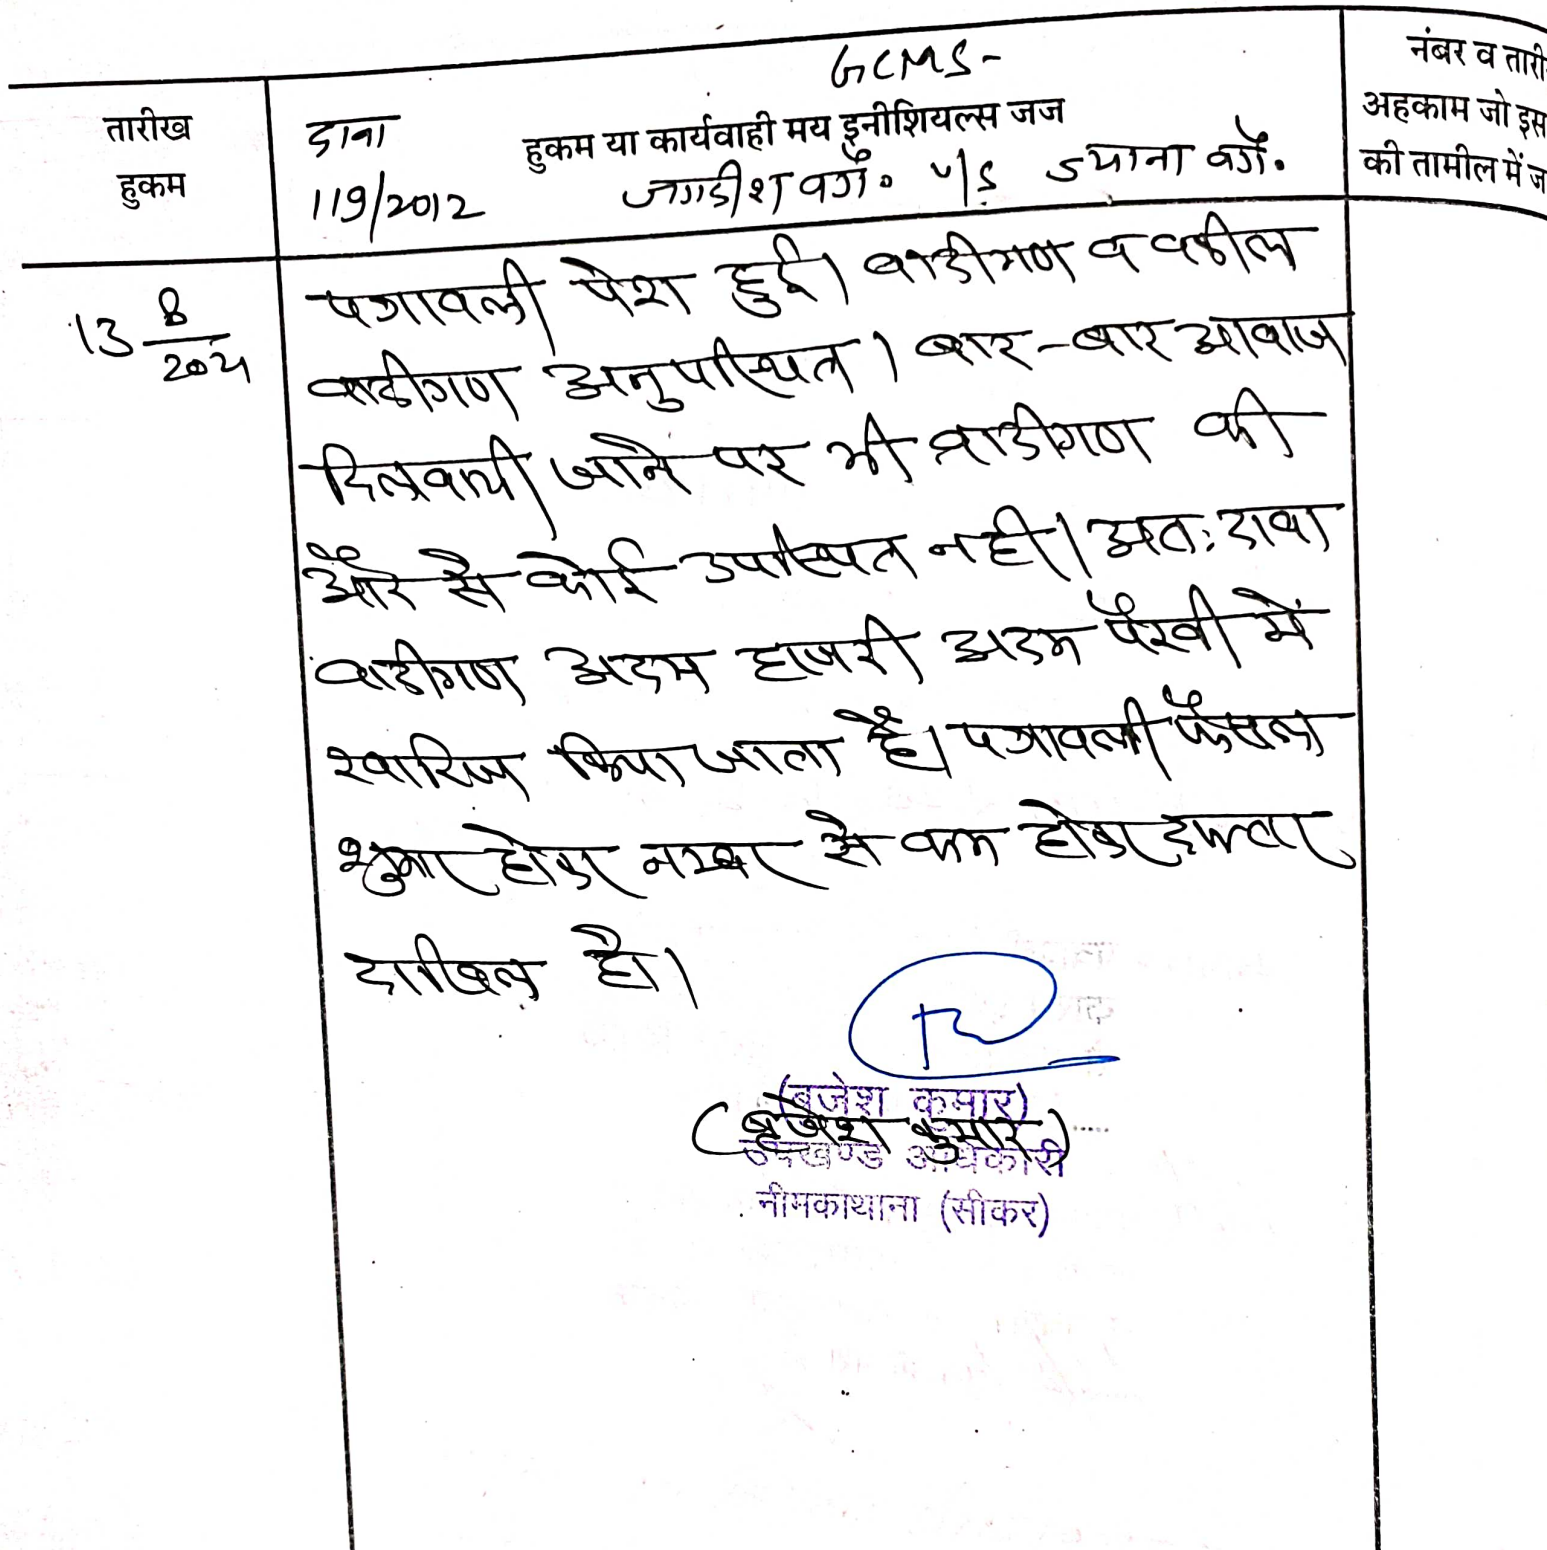 GCMS-
तारीख
हुकम
दावा
119/2012
हुकम या कार्यवाही मय इनीशियल्स जज
जगदीश वगै० v/s वगै.
नंबर व तारी
अहकाम जो इस
की तामील में ज
13 8/2024
पत्रावली पेश हुई। वादीगण व वकील
वादीगण अनुपस्थित। बार-बार आवाज
दिलवायी जाने पर भी वादीगण की
और से कोई उपस्थित नही। अतः दावा
वादीगण अदम हाजरी अदम पैरवी में
खारिज किया जाता है। पत्रावली फैसल
शुमार होकर नम्बर से कम होकर दफ्तर
दाखिल हो।
(बृजेश कुमार)
(बृजेश कुमार)
उपखण्ड अधिकारी
नीमकाथाना (सीकर)